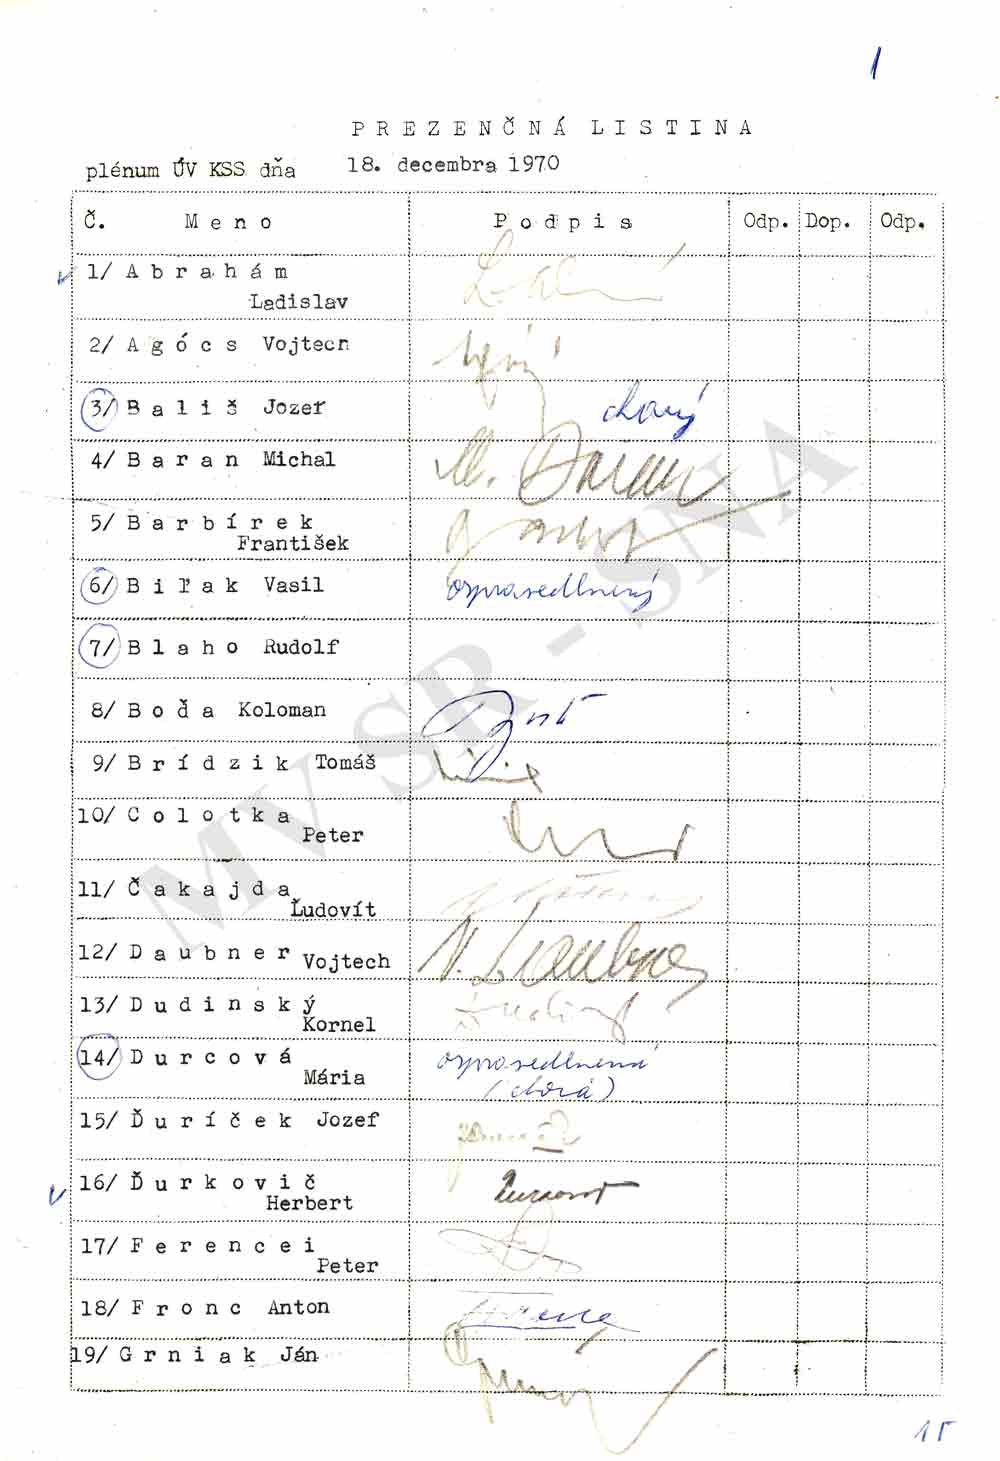 1
P R E Z E N Č N Á L I S T I N A
plénum ÚV KSS dňa 18. decembra 1970
Č. M e n o P o d p i s Odp. Dop. Odp.
1/ A b r a h á m
Ladislav
2/ A g ó c s Vojtech
3/ B a l i š Jozef chorý
4/ B a r a n Michal M. Baran
5/ B a r b í r e k
František
6/ B i ľ a k Vasil ospravedlnený
7/ B l a h o Rudolf
8/ B o ď a Koloman
9/ B r í d z i k Tomáš
10/ C o l o t k a
Peter
11/ Č a k a j d a
Ľudovít
12/ D a u b n e r Vojtech V. Daubner
13/ D u d i n s k ý
Kornel
14/ D u r c o v á ospravedlnená
Mária (chorá)
15/ Ď u r í č e k Jozef
16/ Ď u r k o v i č
Herbert
17/ F e r e n c e i
Peter
18/ F r o n c Anton
19/ G r n i a k Ján
MV SR - SNA
15